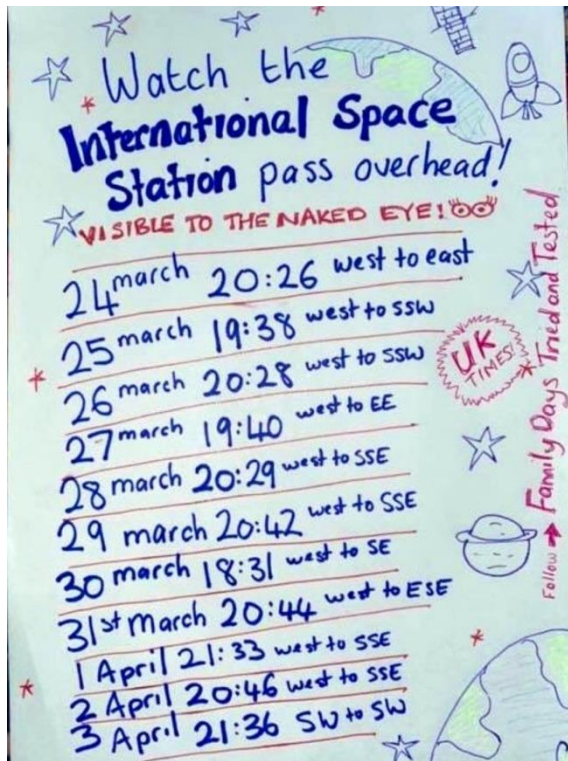 Watch the
International Space
Station pass overhead!
VISIBLE TO THE NAKED EYE!
24 march 20:26 west to east
25 march 19:38 west to SSW
26 march 20:28 west to SSW
27 march 19:40 west to EE
28 march 20:29 west to SSE
29 march 20:42 west to SSE
30 march 18:31 west to SE
31st march 20:44 west to ESE
1 April 21:33 west to SSE
2 April 20:46 west to SSE
3 April 21:36 SW to SW
UK
TIMES!
Follow → Family Days Tried and Tested